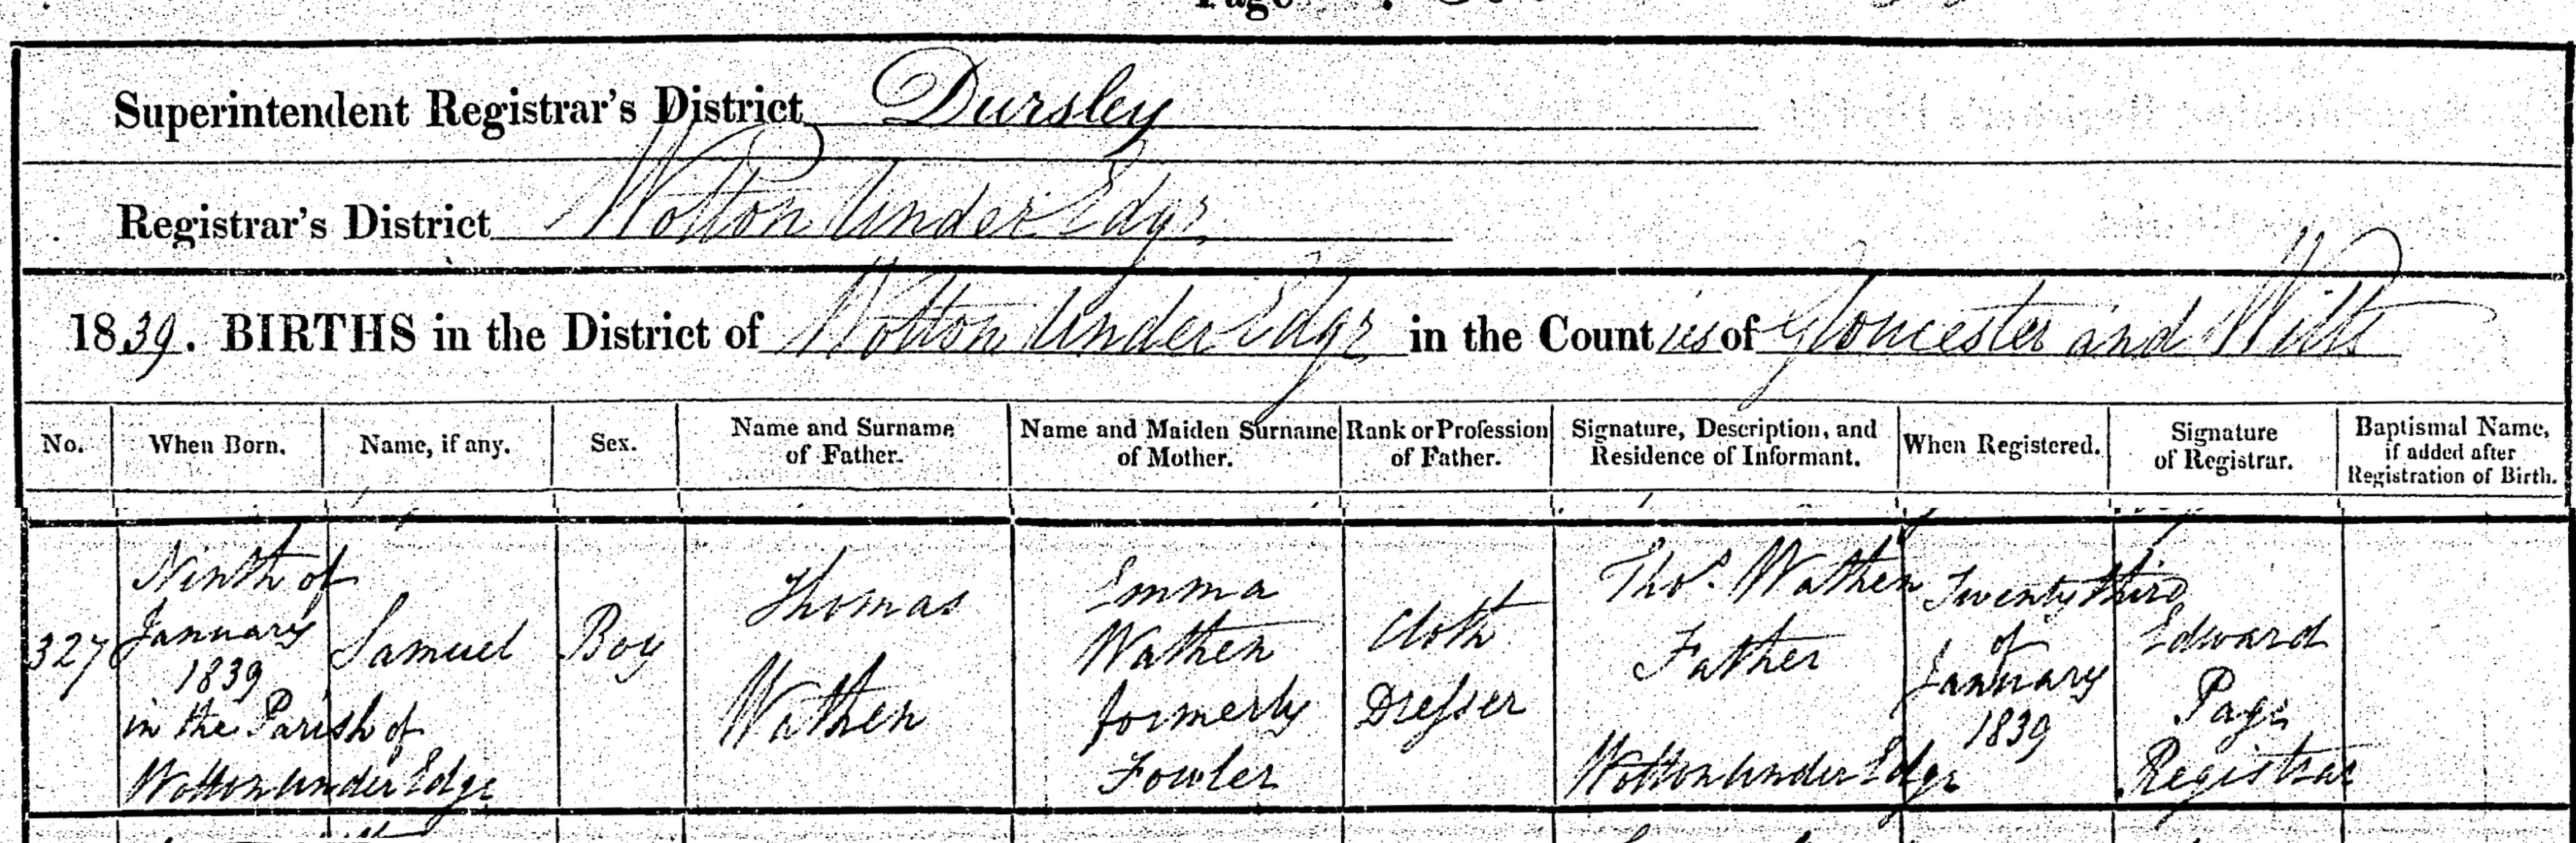 Page
Superintendent Registrar's District Dursley
Registrar's District Wotton Under Edge
1839. BIRTHS in the District of Wotton Under Edge in the Counties of Gloucester and Wilts
No.
When Born.
Name, if any.
Sex.
Name and Surname
of Father.
Name and Maiden Surname
of Mother.
Rank or Profession
of Father.
Signature, Description, and
Residence of Informant.
When Registered.
Signature
of Registrar.
Baptismal Name,
if added after
Registration of Birth.
327
Ninth of
January
1839
in the Parish of
Wotton under Edge
Samuel
Boy
Thomas
Wathen
Emma
Wathen
formerly
Fowler
Cloth
Dresser
Thos. Wathen
Father
Wotton under Edge
Twenty third
of
January
1839
Edward
Page
Registrar